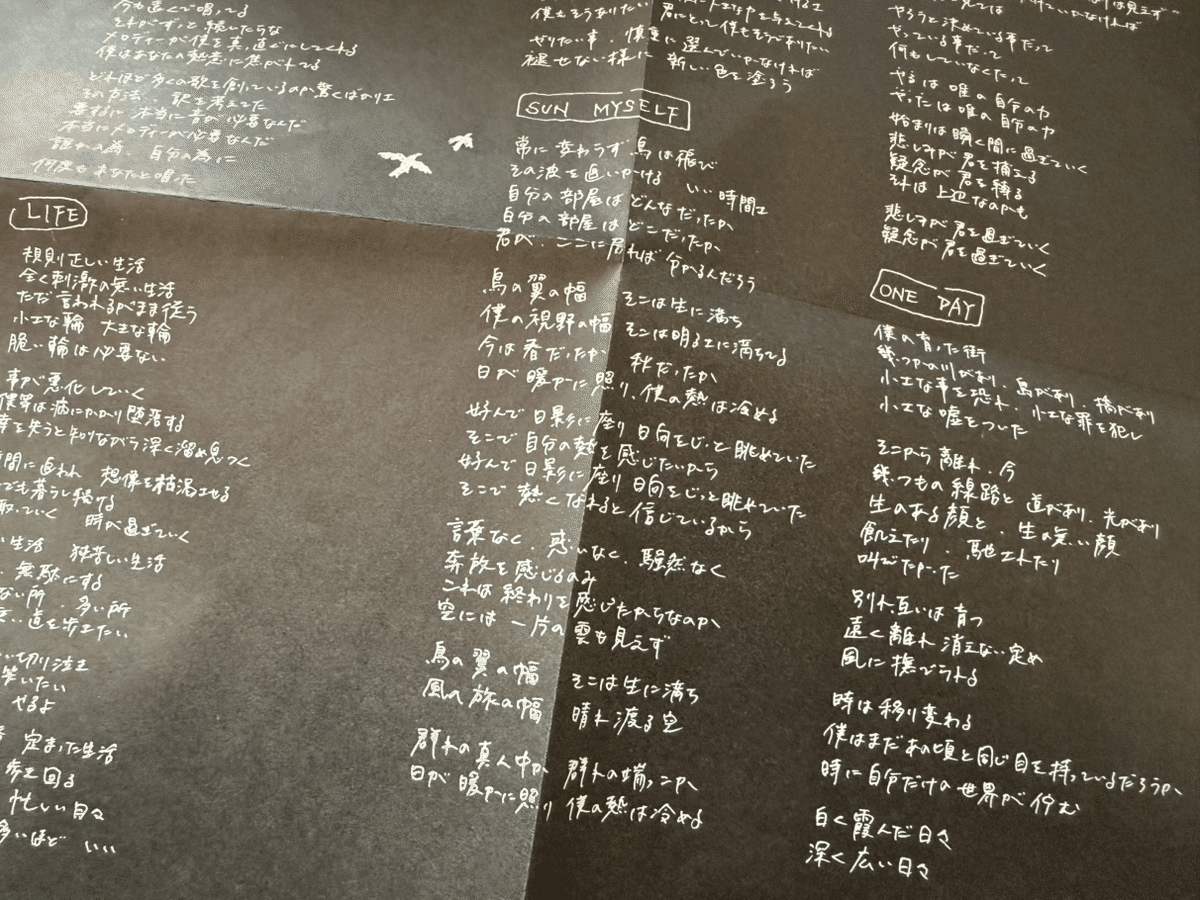 今も遠くで唱ってる
それがずっと続したらな
メロディーが僕を真っ直ぐにしてくれる
僕はあなたの熱意に焦がれてる
どれほど多くの歌を創っているのか驚くばかりさ
その方法、訳を考えてた
要するに本当に音が必要なんだ
本当にメロディーが必要なんだ
誰かの為、自分の為に
何度もあなたと唱った
LIFE
規則正しい生活
全く刺激の無い生活
ただ言われるがまま従う
小さな輪 大きな輪
脆い輪は必要ない
事が悪化していく
僕等は病にかかり堕落する
を失うと知りながら深く溜め息つく
間に追われ 想像を枯渇させる
でも暮らし続ける
取っていく 時が過ぎていく
生活 狭苦しい生活
無駄にする
ない所、多い所
直を歩きたい
い切り泣き
笑いたい
やるよ
定まった生活
歩き回る
忙しい日々
多いほど いい
僕もそう有りたい
君にとって僕もそうありたい
やりたい事、慎重に選んでいかなければ
褪せない様に 新しい色を塗ろう
SUN MYSELF
常に変わらず鳥は飛び
その波を追いかける いい時間さ
自分の部屋はどんなだったか
自分の部屋はどこだったか
君が、ここに居れば分かるんだろう
鳥の翼の幅 そこは生に満ち
僕の視野の幅 そこは明るさに満ちてる
今は春だったか 秋だったか
日が暖かに照り、僕の熱は冷める
好んで日影に座り日向をじっと眺めていた
そこで自分の熱を感じたいから
好んで日影に座り日向をじっと眺めていた
そこで熱くなれると信じているから
言葉なく、惑いなく、騒然なく
奔放を感じるのみ
これは終わりを感じたからなのか
空には一片の雲も見えず
鳥の翼の幅 そこは生に満ち
風の旅の幅 晴れ渡る空
群れの真ん中か 群れの端っこか
日が暖かに照り 僕の熱は冷める
やろうと決めている事だって
やっている事だって
何もしていなくたって
やるは唯の自分のか
やったは唯の自分のか
始まりは瞬く間に過ぎていく
悲しみが君を捕える
疑念が君を縛る
それは上辺なのかも
悲しみが君を過ぎていく
疑念が君を過ぎていく
ONE DAY
僕の育った街
幾つかの川があり、島があり、橋があり
小さな事を恐れ、小さな罪を犯し
小さな嘘をついた
そこから離れ、今
幾つもの線路と 道があり、光があり
生のある顔と、生の無い顔
飢えたり、馳されたり
叫びたかった
別れ互いは育つ
遠く離れ 消えない定め
風に撫でられる
時は移り変わる
僕はまだあの頃と同じ目を持っているだろうか
時に自分だけの世界が佇む
白く霞んだ日々
深く広い日々